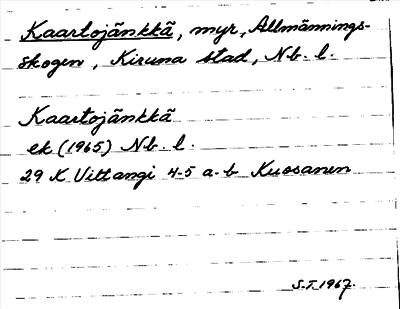 Kaartojänkkä, myr, Allmännings-
skogen, Kiruna stad, N.b. l.
Kaartojänkkä
ek (1965) N.b. l.
29 K Vittangi 4-5 a-b Kuosanen
S.T. 1967.